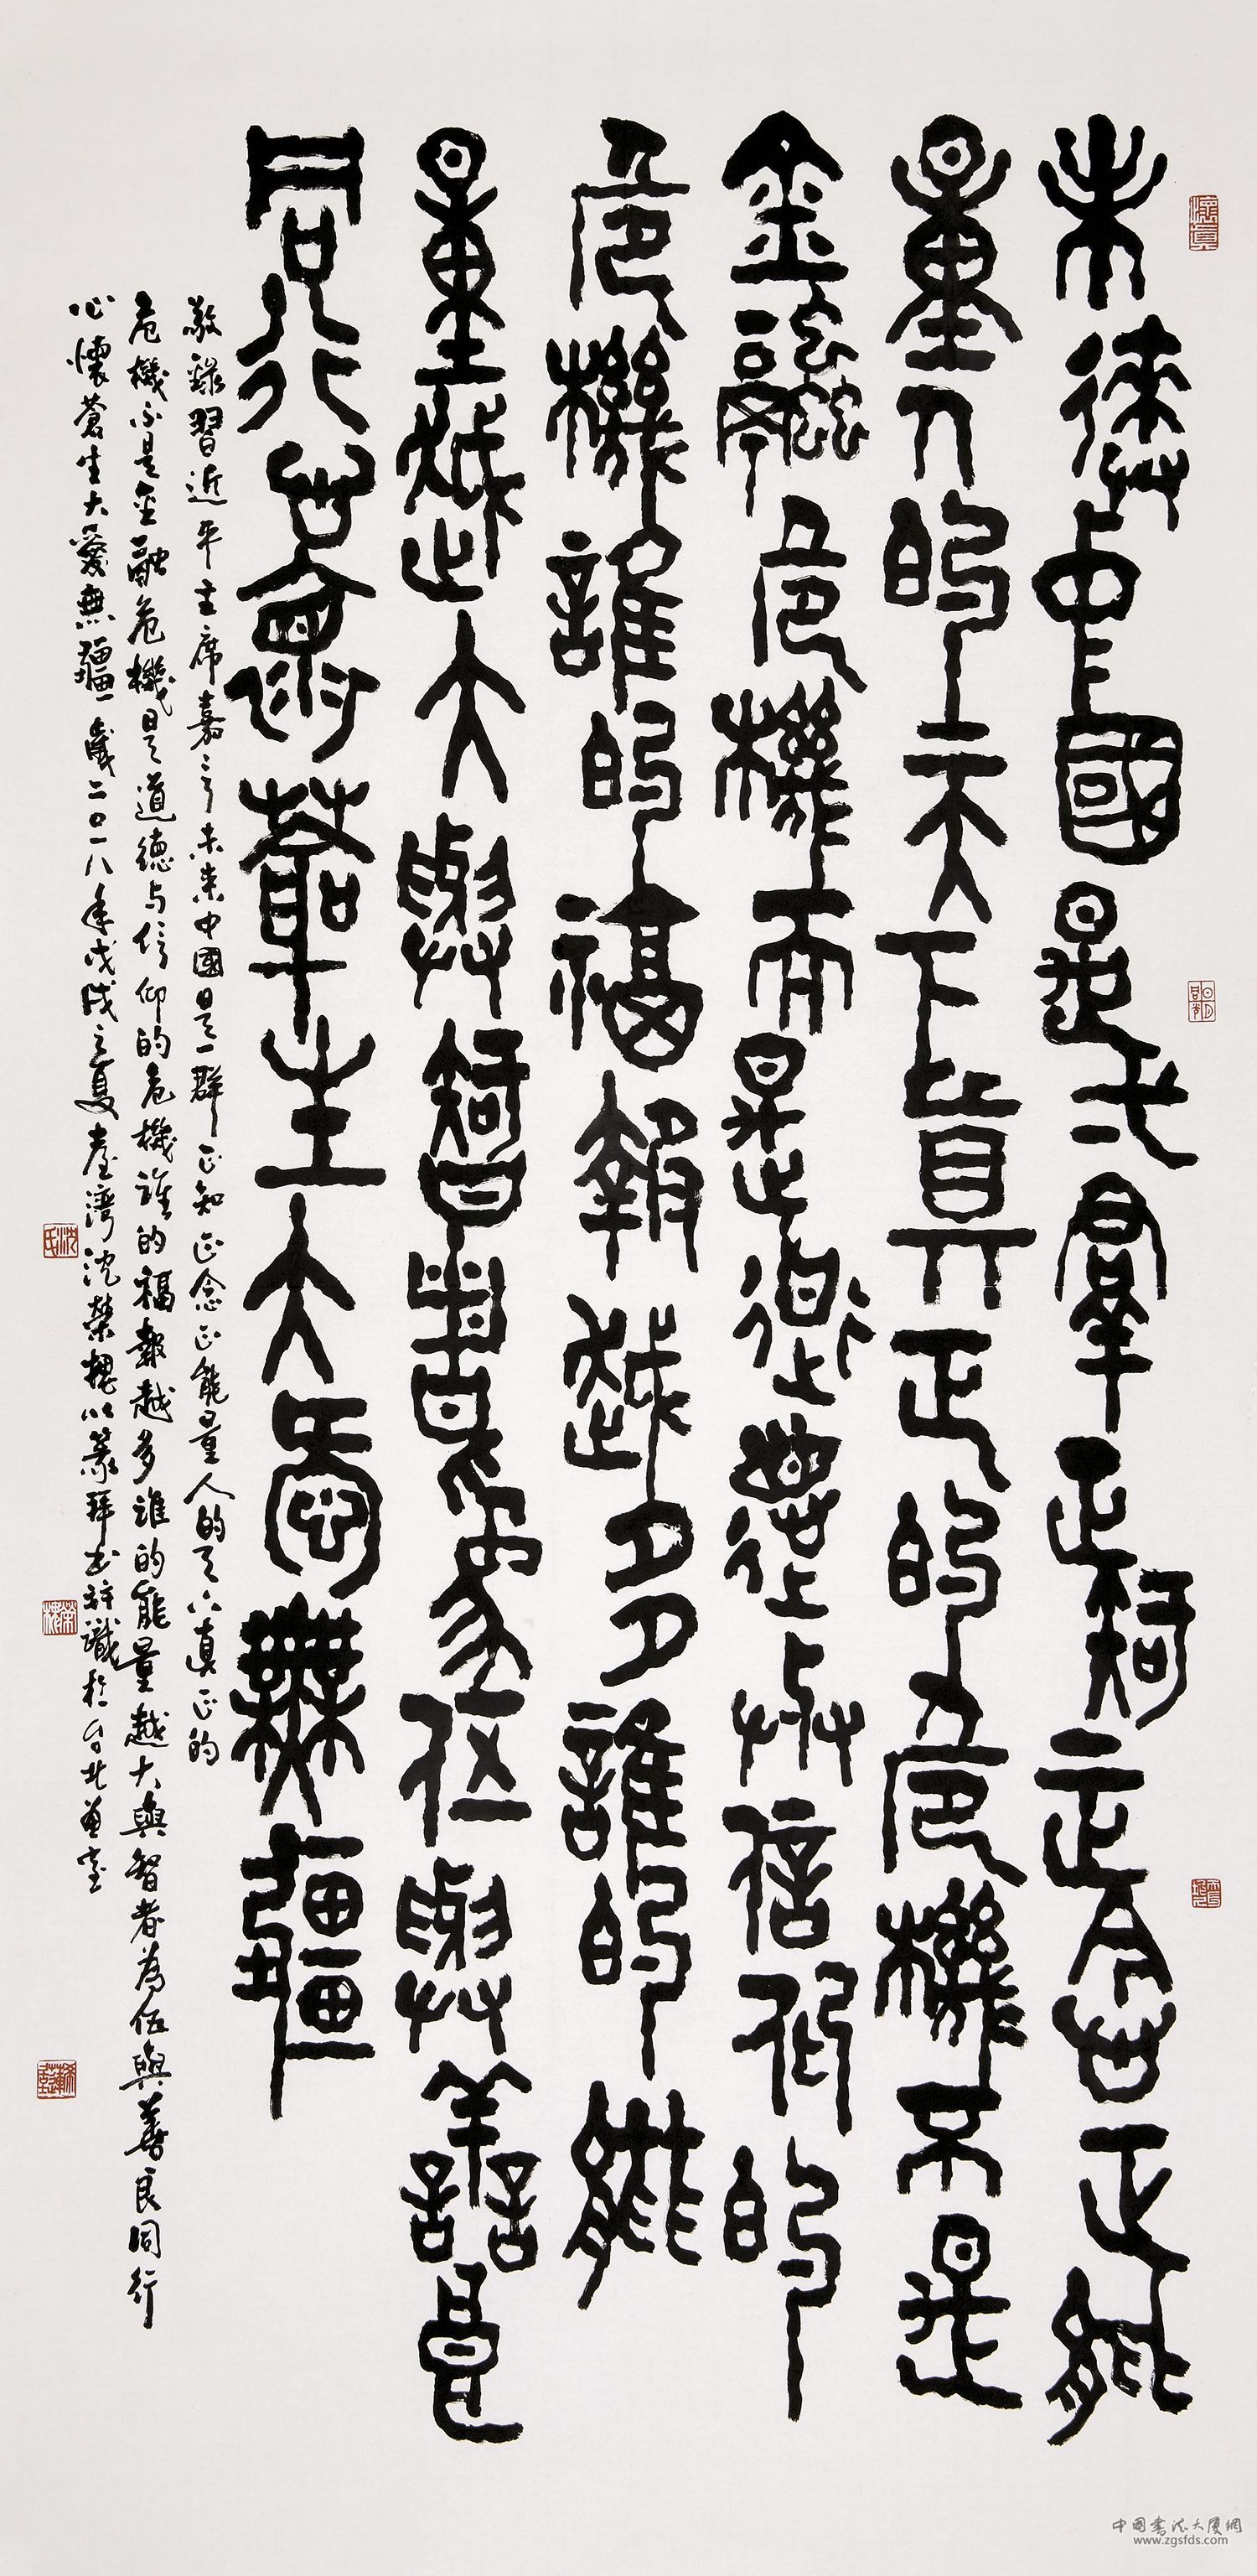 未來中國是一群正知正念正能
量人的天下真正的危機不是
金融危機而是道德與信仰的
危機誰的福報越多誰的能
量越大與智者為伍與善良
同行心懷蒼生大愛無疆
敬錄習近平主席嘉言未來中國是一群正知正念正能量人的天下真正的
危機不是金融危機是道德与信仰的危機誰的福報越多誰的能量越大與智者為伍與善良同行
心懷蒼生大愛無疆歲二〇一八年戊戌之夏臺灣沈榮槐以篆拜書并識於台北
中国书法大厦網
www.zgsfds.com